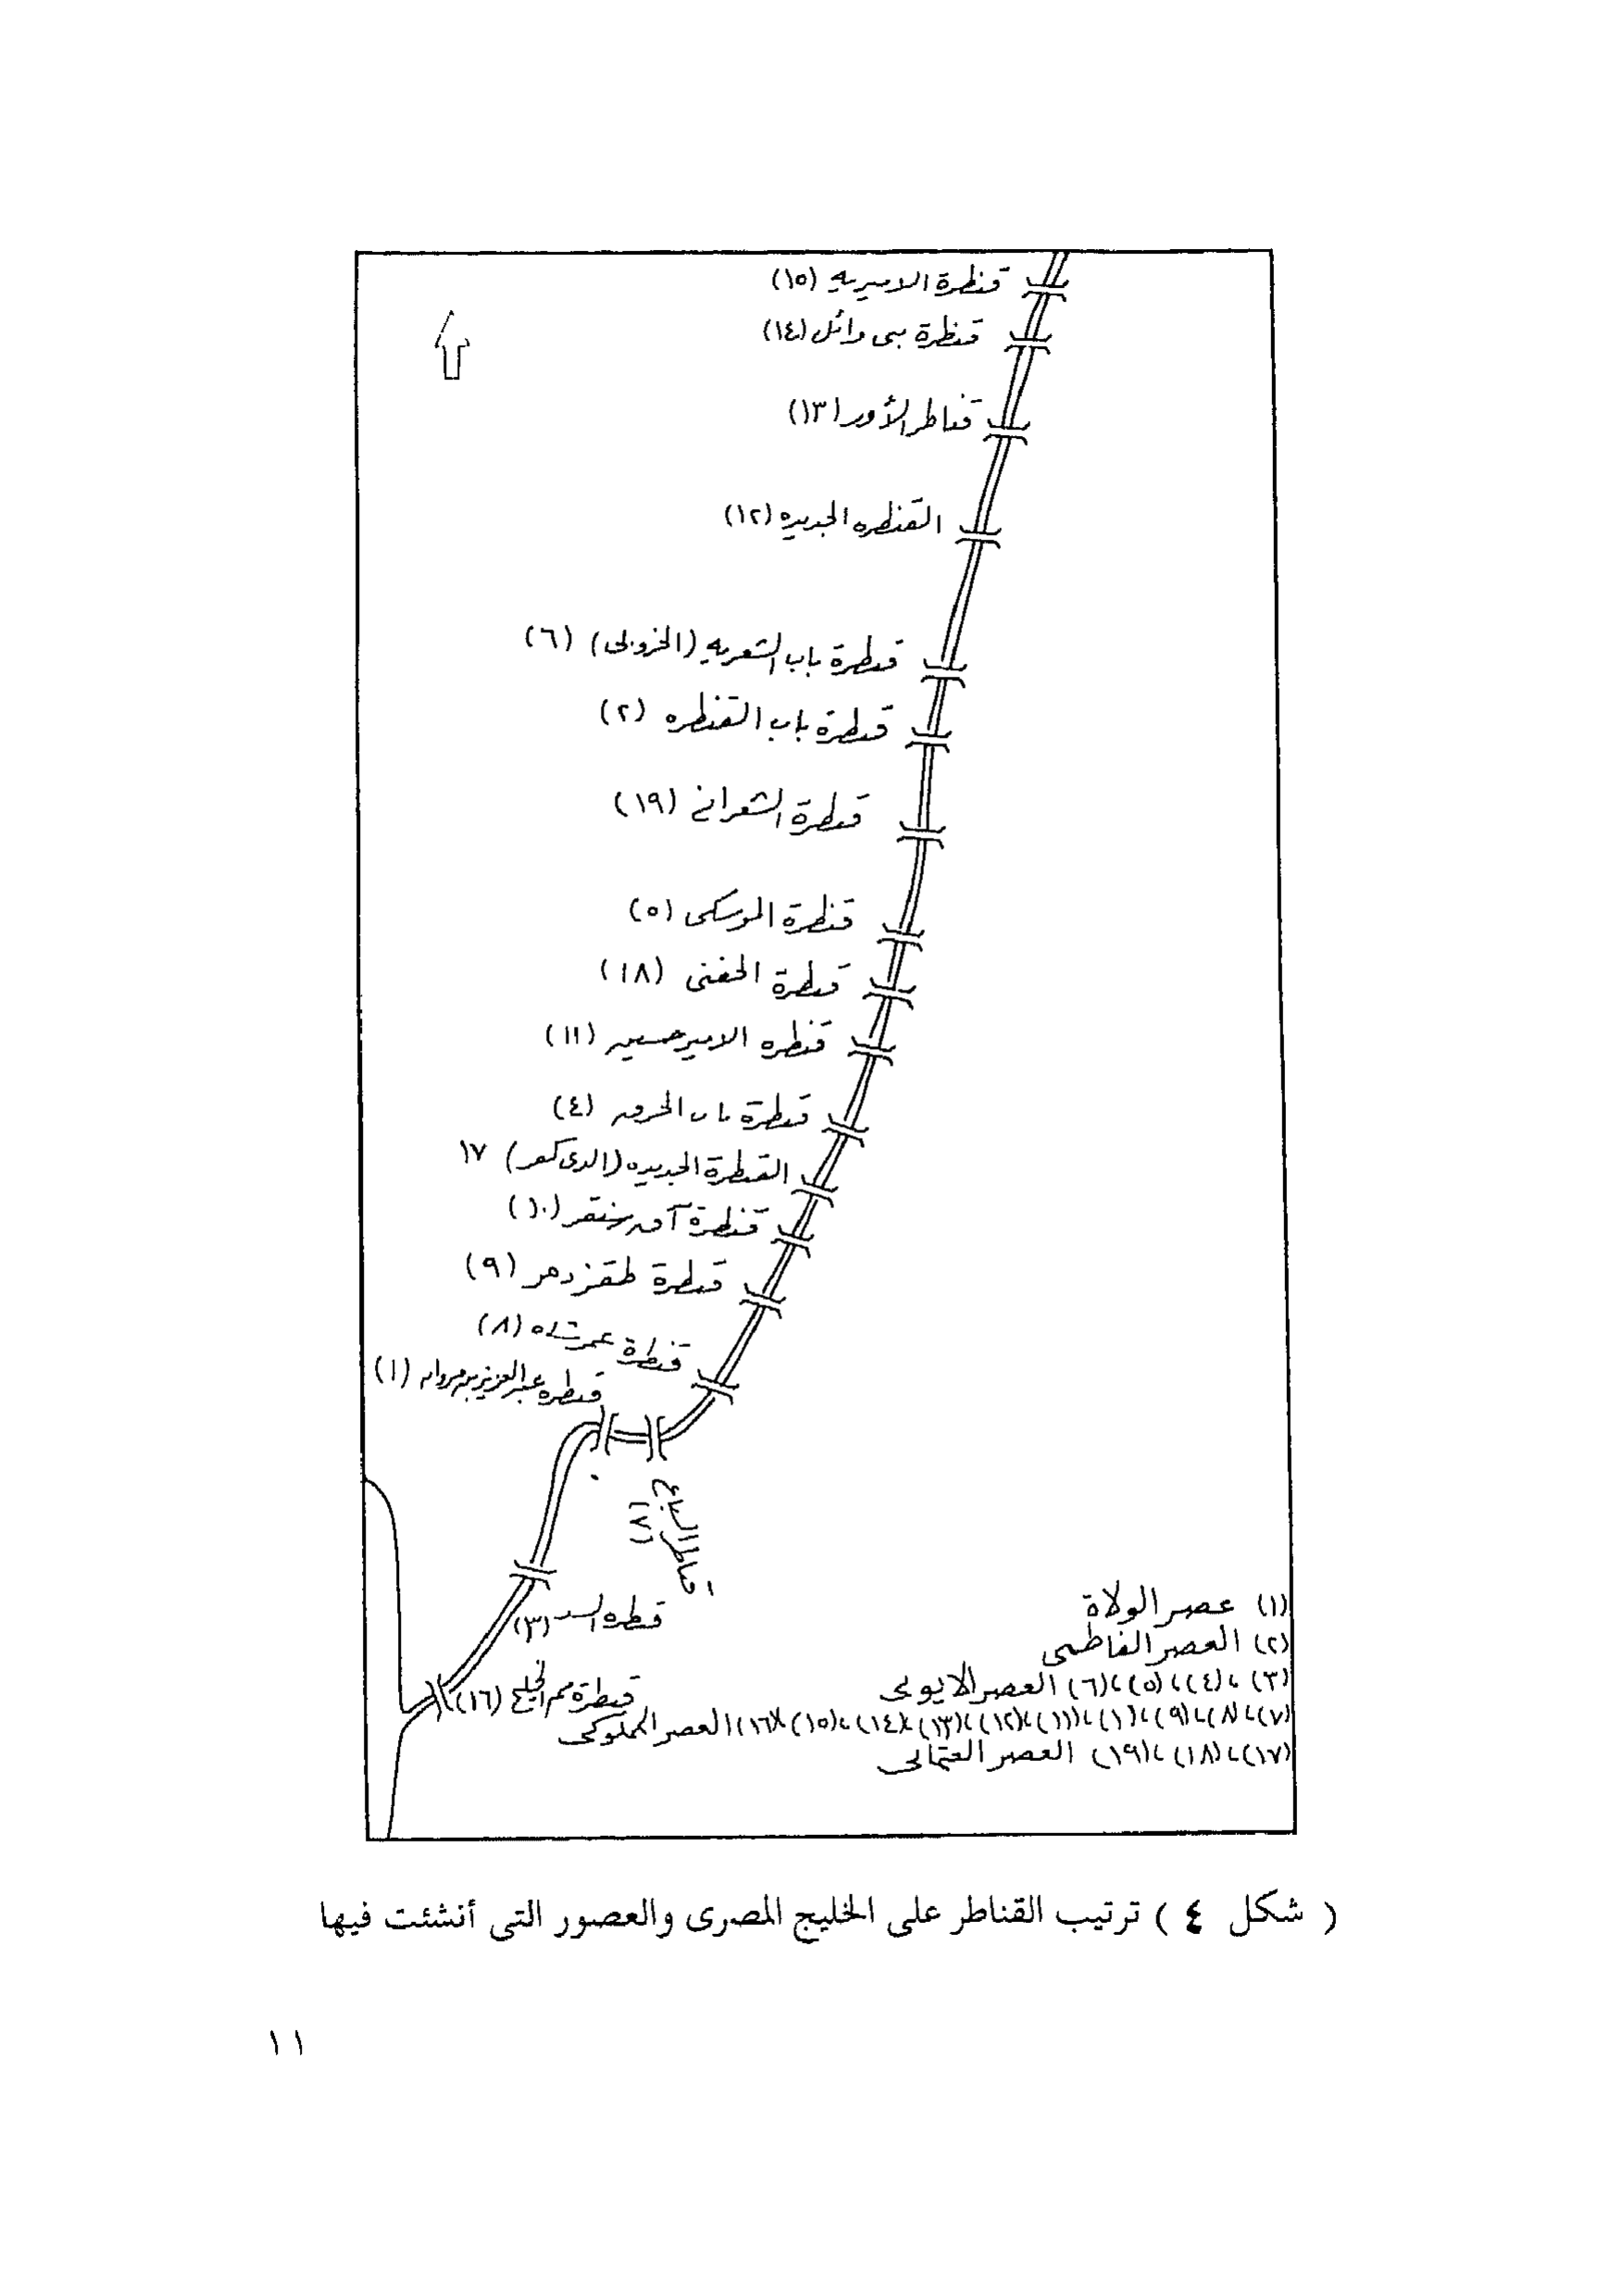 قنظرة الاميريه (١٥)
قنظرة بنى وائل (١٤)
قناطر الأوز (١٣)
القنظره الجديده (١٢)
قنطرة باب الشعريه (الخروبى) (٦)
قنطرة باب القنظره (٢)
قنطرة الشعرانى (١٩)
قنظرة الموسكى (٥)
قنطرة الحفنى (١٨)
قنظره الامير حسين (١١)
قنطرة باب الخرق (٤)
القنطرة الجديده (الدى كفر) ١٧
قنظرة آق سنقر (١٠)
قنطرة طقز دمر (٩)
قنطرة عمر شاه (٨)
قنطره عبد العزيز بن مروان (١)
قناطر السباع
(٧)
قنطره السد (٣)
قنطرة فم الخليج (١٦)
(١) عصر الولاة
(٢) العصر الفاطمى
(٣) ، (٤) ، (٥) ، (٦) العصر الايوبى
(٧) ، (٨) ، (٩) ، (١٠) ، (١١) ، (١٢) ، (١٣) ، (١٤) ، (١٥) ، (١٦) العصر المملوكى
(١٧) ، (١٨) ، (١٩) العصر العثمانى
( شكل ٤ ) ترتيب القناطر على الخليج المصرى والعصور التى أنشئت فيها
١١